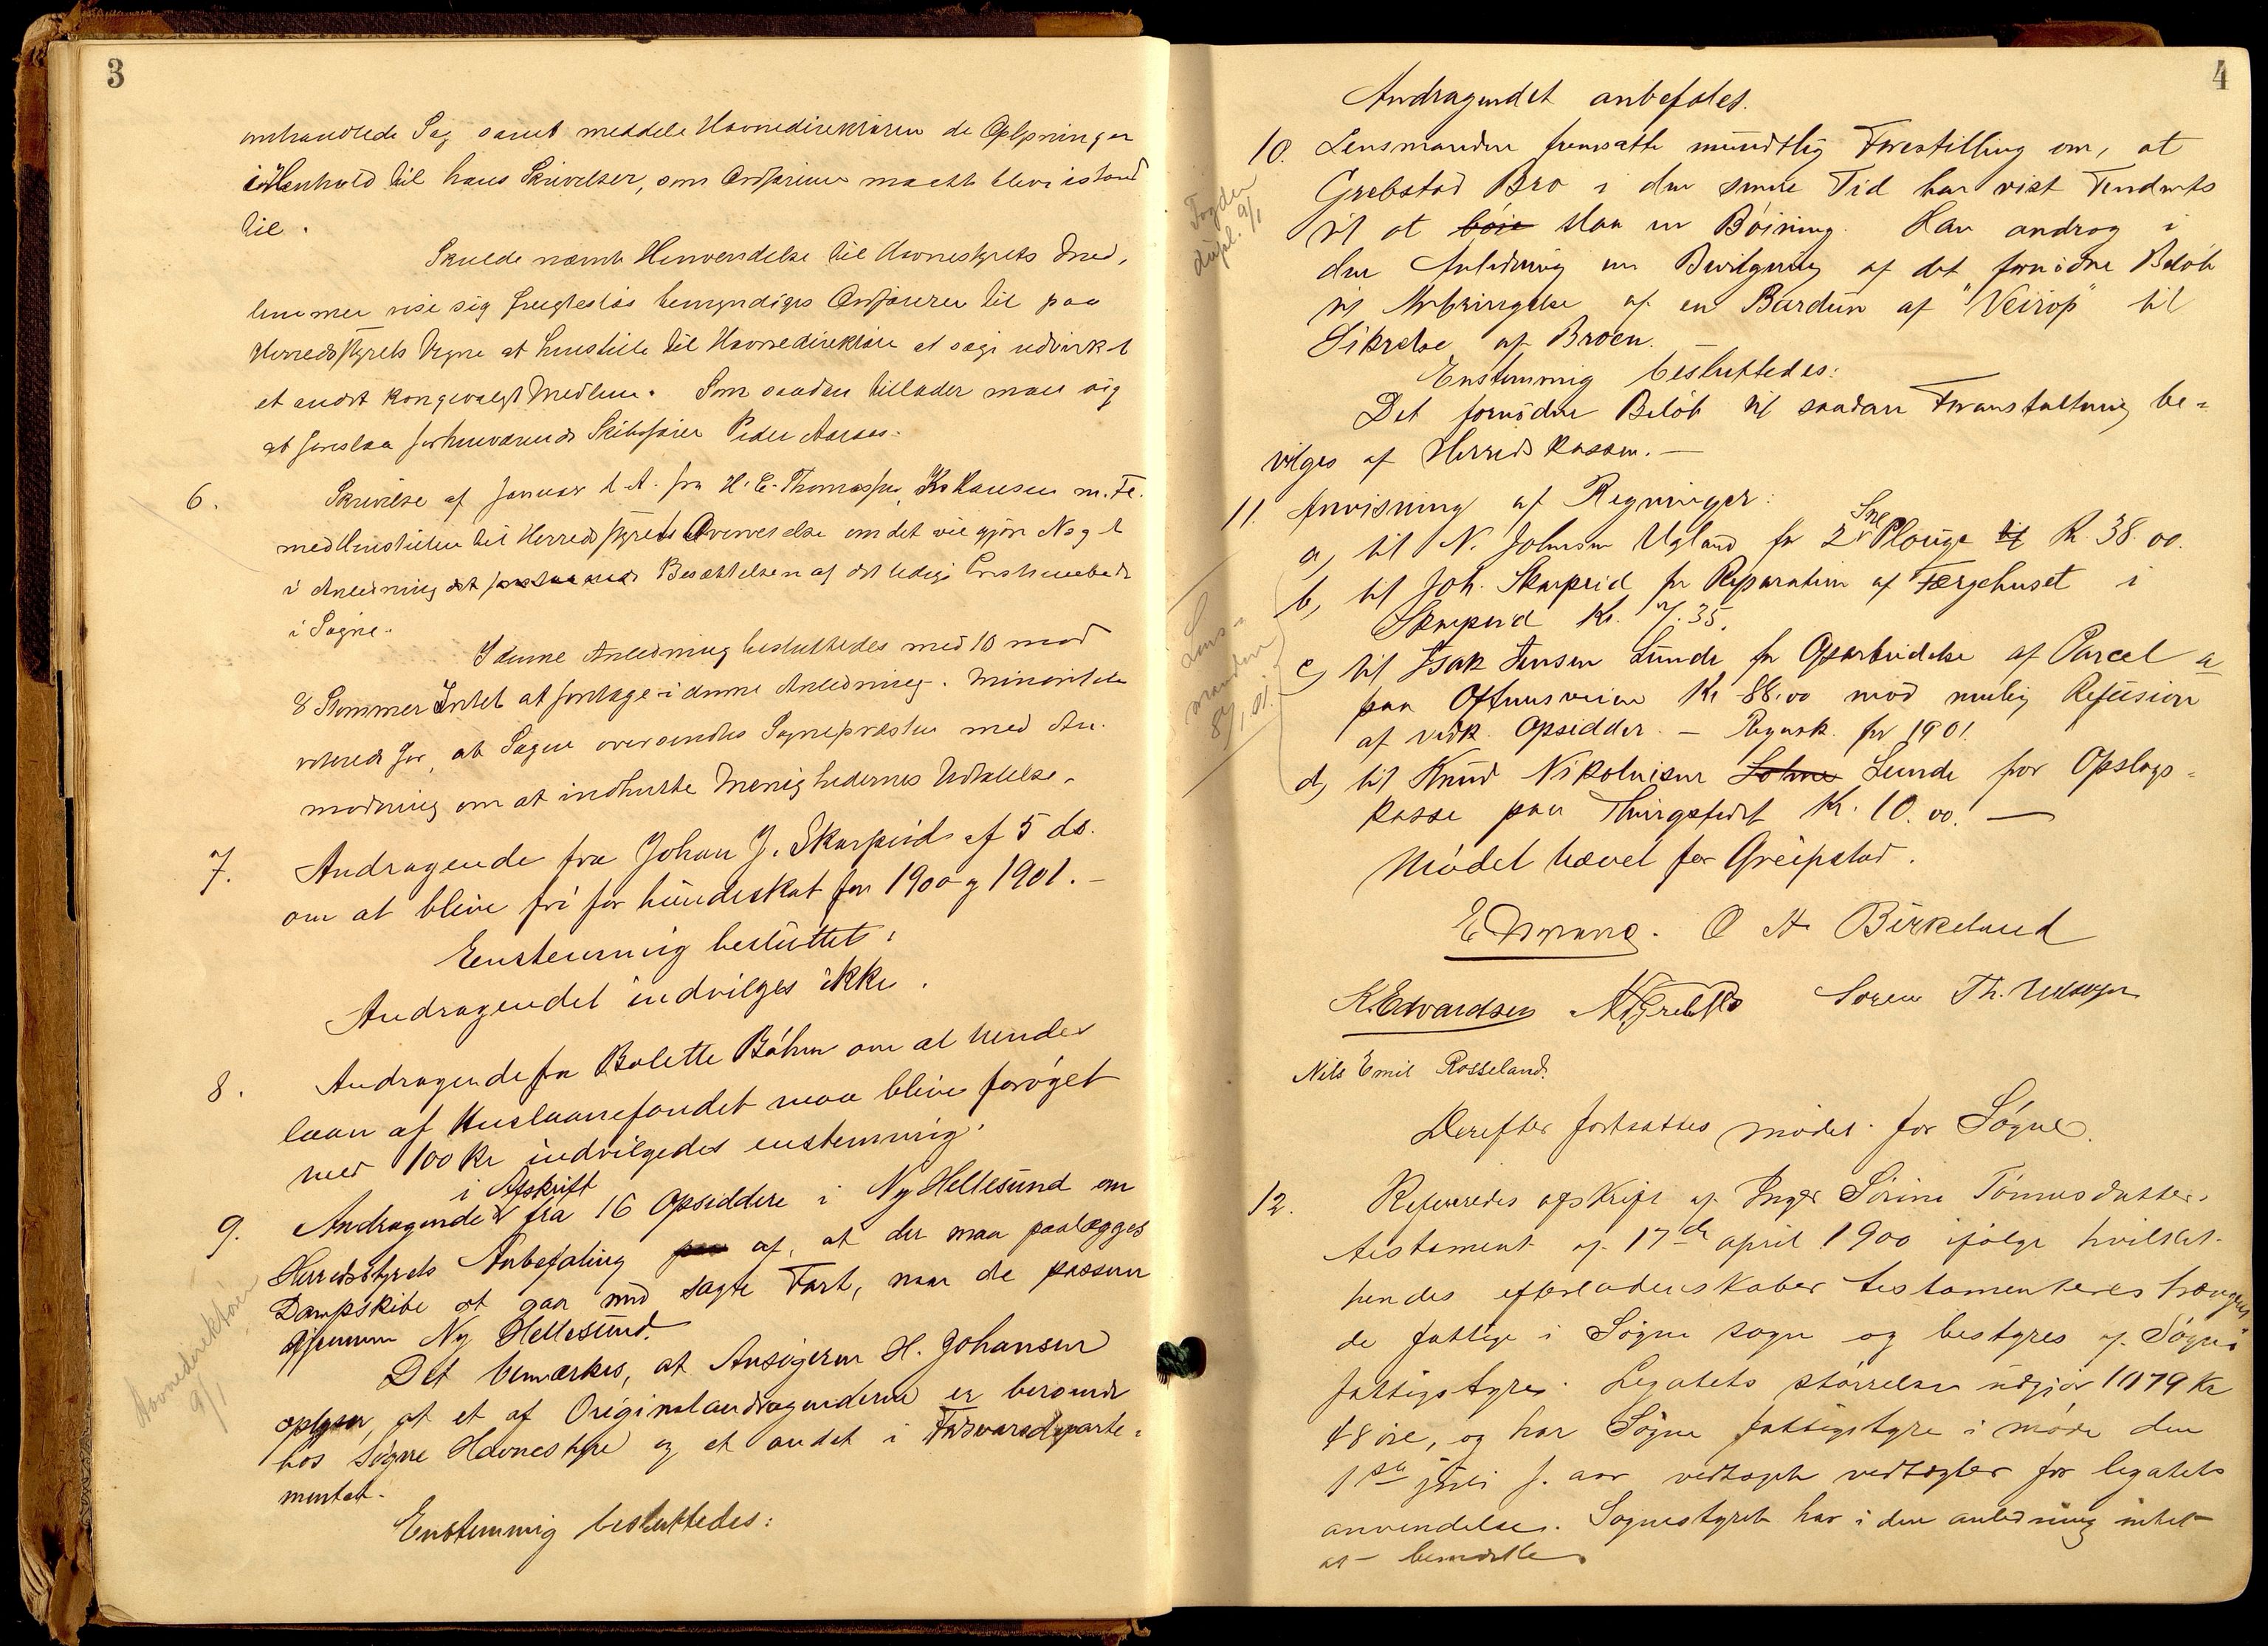 3
omhandlede Sag samt meddele Havnedirektøren de Oplysninger
i Henhold til hans Skrivelser, som Ordføreren maatte blive istand
til.
Skulde nævnte Henvendelse til Havnestyrets Med-
lemmer vise sig frugtesløs bemyndiges Ordføreren til paa
Herredsstyrets Vegne at henstille til Havnedirektøren at søge udvirket
et andet kongevalgt Medlem. Som saadan tillader man sig
at foreslaa forhenværende Skibsfører Peder Aaros.
6. Skrivelse af Januar d. A. fra H. E. Thomassen, K. Hansen m. Fl.
med Henstillen til Herredsstyrets Overveielse om det vil gjøre Noget
i Anledning det Besættelsen af det ledige Presteembede
i Søgne.
I denne Anledning besluttedes med 10 mod
8 Stemmer Intet at foretage i denne Anledning. Minoriteten
voterede for, at Sagen oversendtes Sognepræsten med An-
modning om at indhente Menighedernes Udtalelse.
7. Andragende fra Johan J. Skarpeid af 5 ds.
om at blive fri for hundeskat for 1900 og 1901. -
Eenstemmig besluttet:
Andragendet indvilges ikke.
8. Andragende fra Bolette Böhm om at hendes
laan af Huslaanefondet maa blive forøget
med 100 Kr indvilgedes enstemmig.
i Afskrift
9. Andragende fra 16 Opsiddere i Ny Hellesund om
Herredsstyrets Anbefaling paa af, at der maa paalægges
Dampskibe at gaa med sagte Fart, naar de passerer
gjennem Ny Hellesund.
Det bemærkes, at Ansøgeren H. Johansen
oplyser, at et af Originalandragenderne er beroende
hos Søgne Havnestyre og et andet i Forsvarsdeparte-
mentet.
Enstemmig besluttedes:
Havnedirektøren
9/1
4
Andragendet anbefales.
10. Lensmanden fremsatte mundtlig Forestilling om, at
Grebstad Bro i den senere Tid har vist Tendents
til at böie slaa en Böining. Han androg i
den Anledning om Bevilgning af det fornødne Beløb
til Anbringelse af en Bardun af "Veirop" til
Sikrelse af Broen.
Enstemmig besluttedes:
Det fornødne Beløb til saadan Foranstaltning be-
vilges af Herredskassen. -
Fogden
dupl. 9/1
11. Anvisning af Regninger:
Sne
a, til N. Johnsen Ugland for 2 Plouge til Kr. 38.00.
b, til Joh. Skarpeid for Reparation af Færgehuset i
Skarpeid Kr. 7.35.
c, til Isak Jensen Lunde for Oparbeidelse af Parcel a
paa Oftenesveien Kr 88.00 mod mulig Refusion
af vedk. Opsidder. - Regnsk. for 1901.
d, til Knud Nikolaisen Lohne Lunde for Opslags-
kasse paa Thingstedet Kr. 10.00. -
Lens-
manden
8/1 01.
Mödet hævet for Greipstad.
O A Birkeland
K. Edvardsen Søren Th. Udsøgn
Nils Emil Rosseland.
Derefter fortsattes mødet for Søgne.
12. Refereredes afskrift af Inger Sørine Tønnesdatters
testament af 17de april 1900 ifølge hvilket
hendes efterladenskaber testamenteres trængen-
de fattige i Søgne sogn og bestyres af Søgne
fattigstyre. Legatets størrelse udgjør 1079 Kr
48 øre, og har Søgne fattigstyre i møde den
1ste juli f. aar vedtaget vedtægter for legatets
anvendelse. Sognestyret har i den anledning intet
at bemærke.